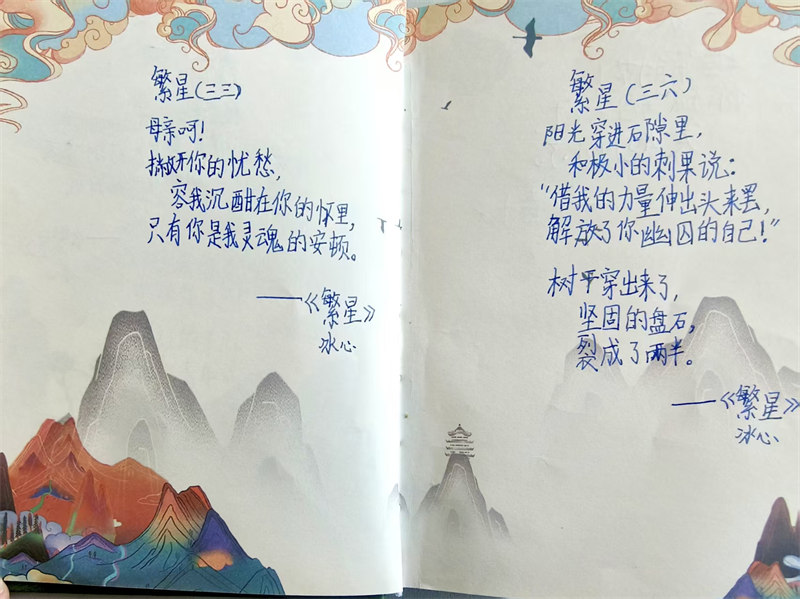 繁星(三三)
母亲呵!
撇开你的忧愁,
容我沉酣在你的怀里,
只有你是我灵魂的安顿。
——《繁星》
冰心
繁星(三六)
阳光穿进石隙里,
和极小的刺果说:
“借我的力量伸出头来罢,
解放了你幽囚的自己!”
树平穿出来了,
坚固的盘石,
裂成了两半。
——《繁星》
冰心